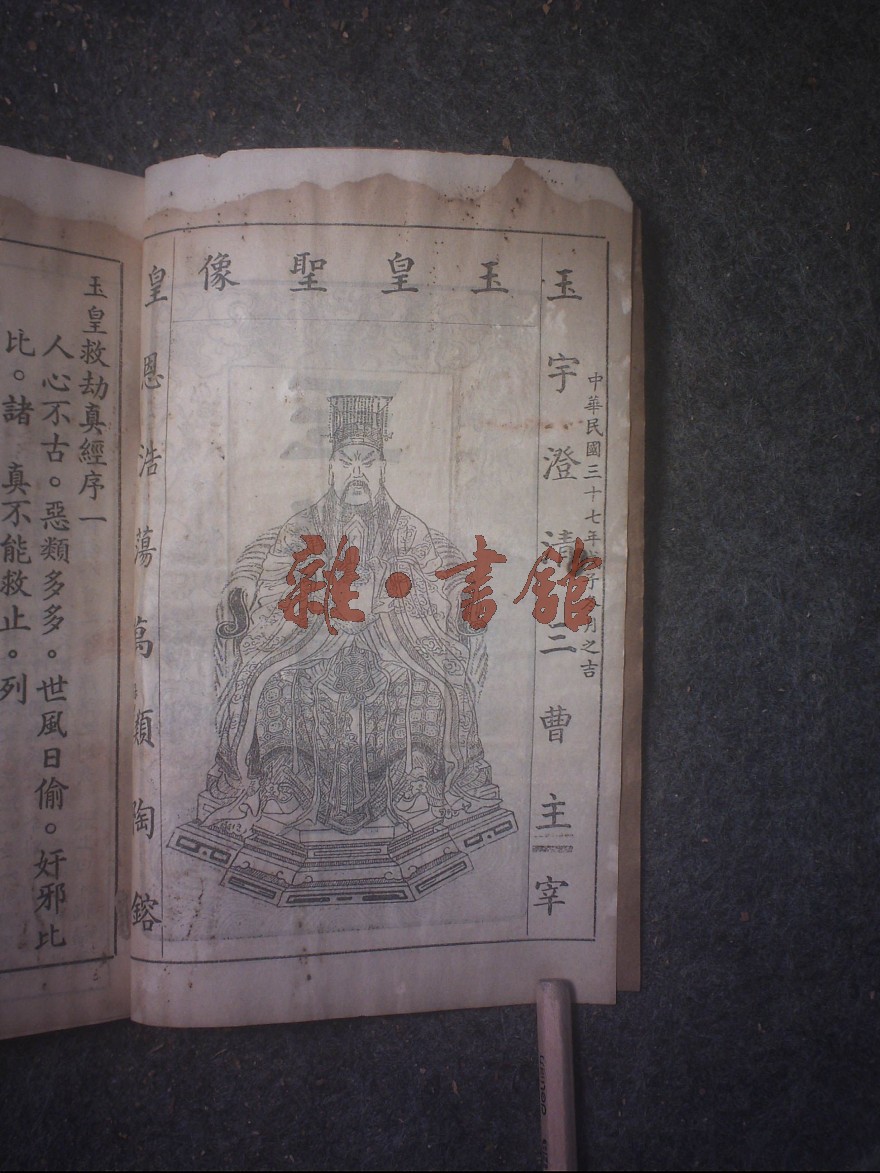 中華民國三十七年子月之吉
玉宇澄清三曹主宰
玉皇聖像
皇恩浩蕩萬類陶鎔
玉皇救劫真經序一
人心不古。惡類多多。世風日偷。奸邪比
比。諸 真不能救止。列
雜·書館